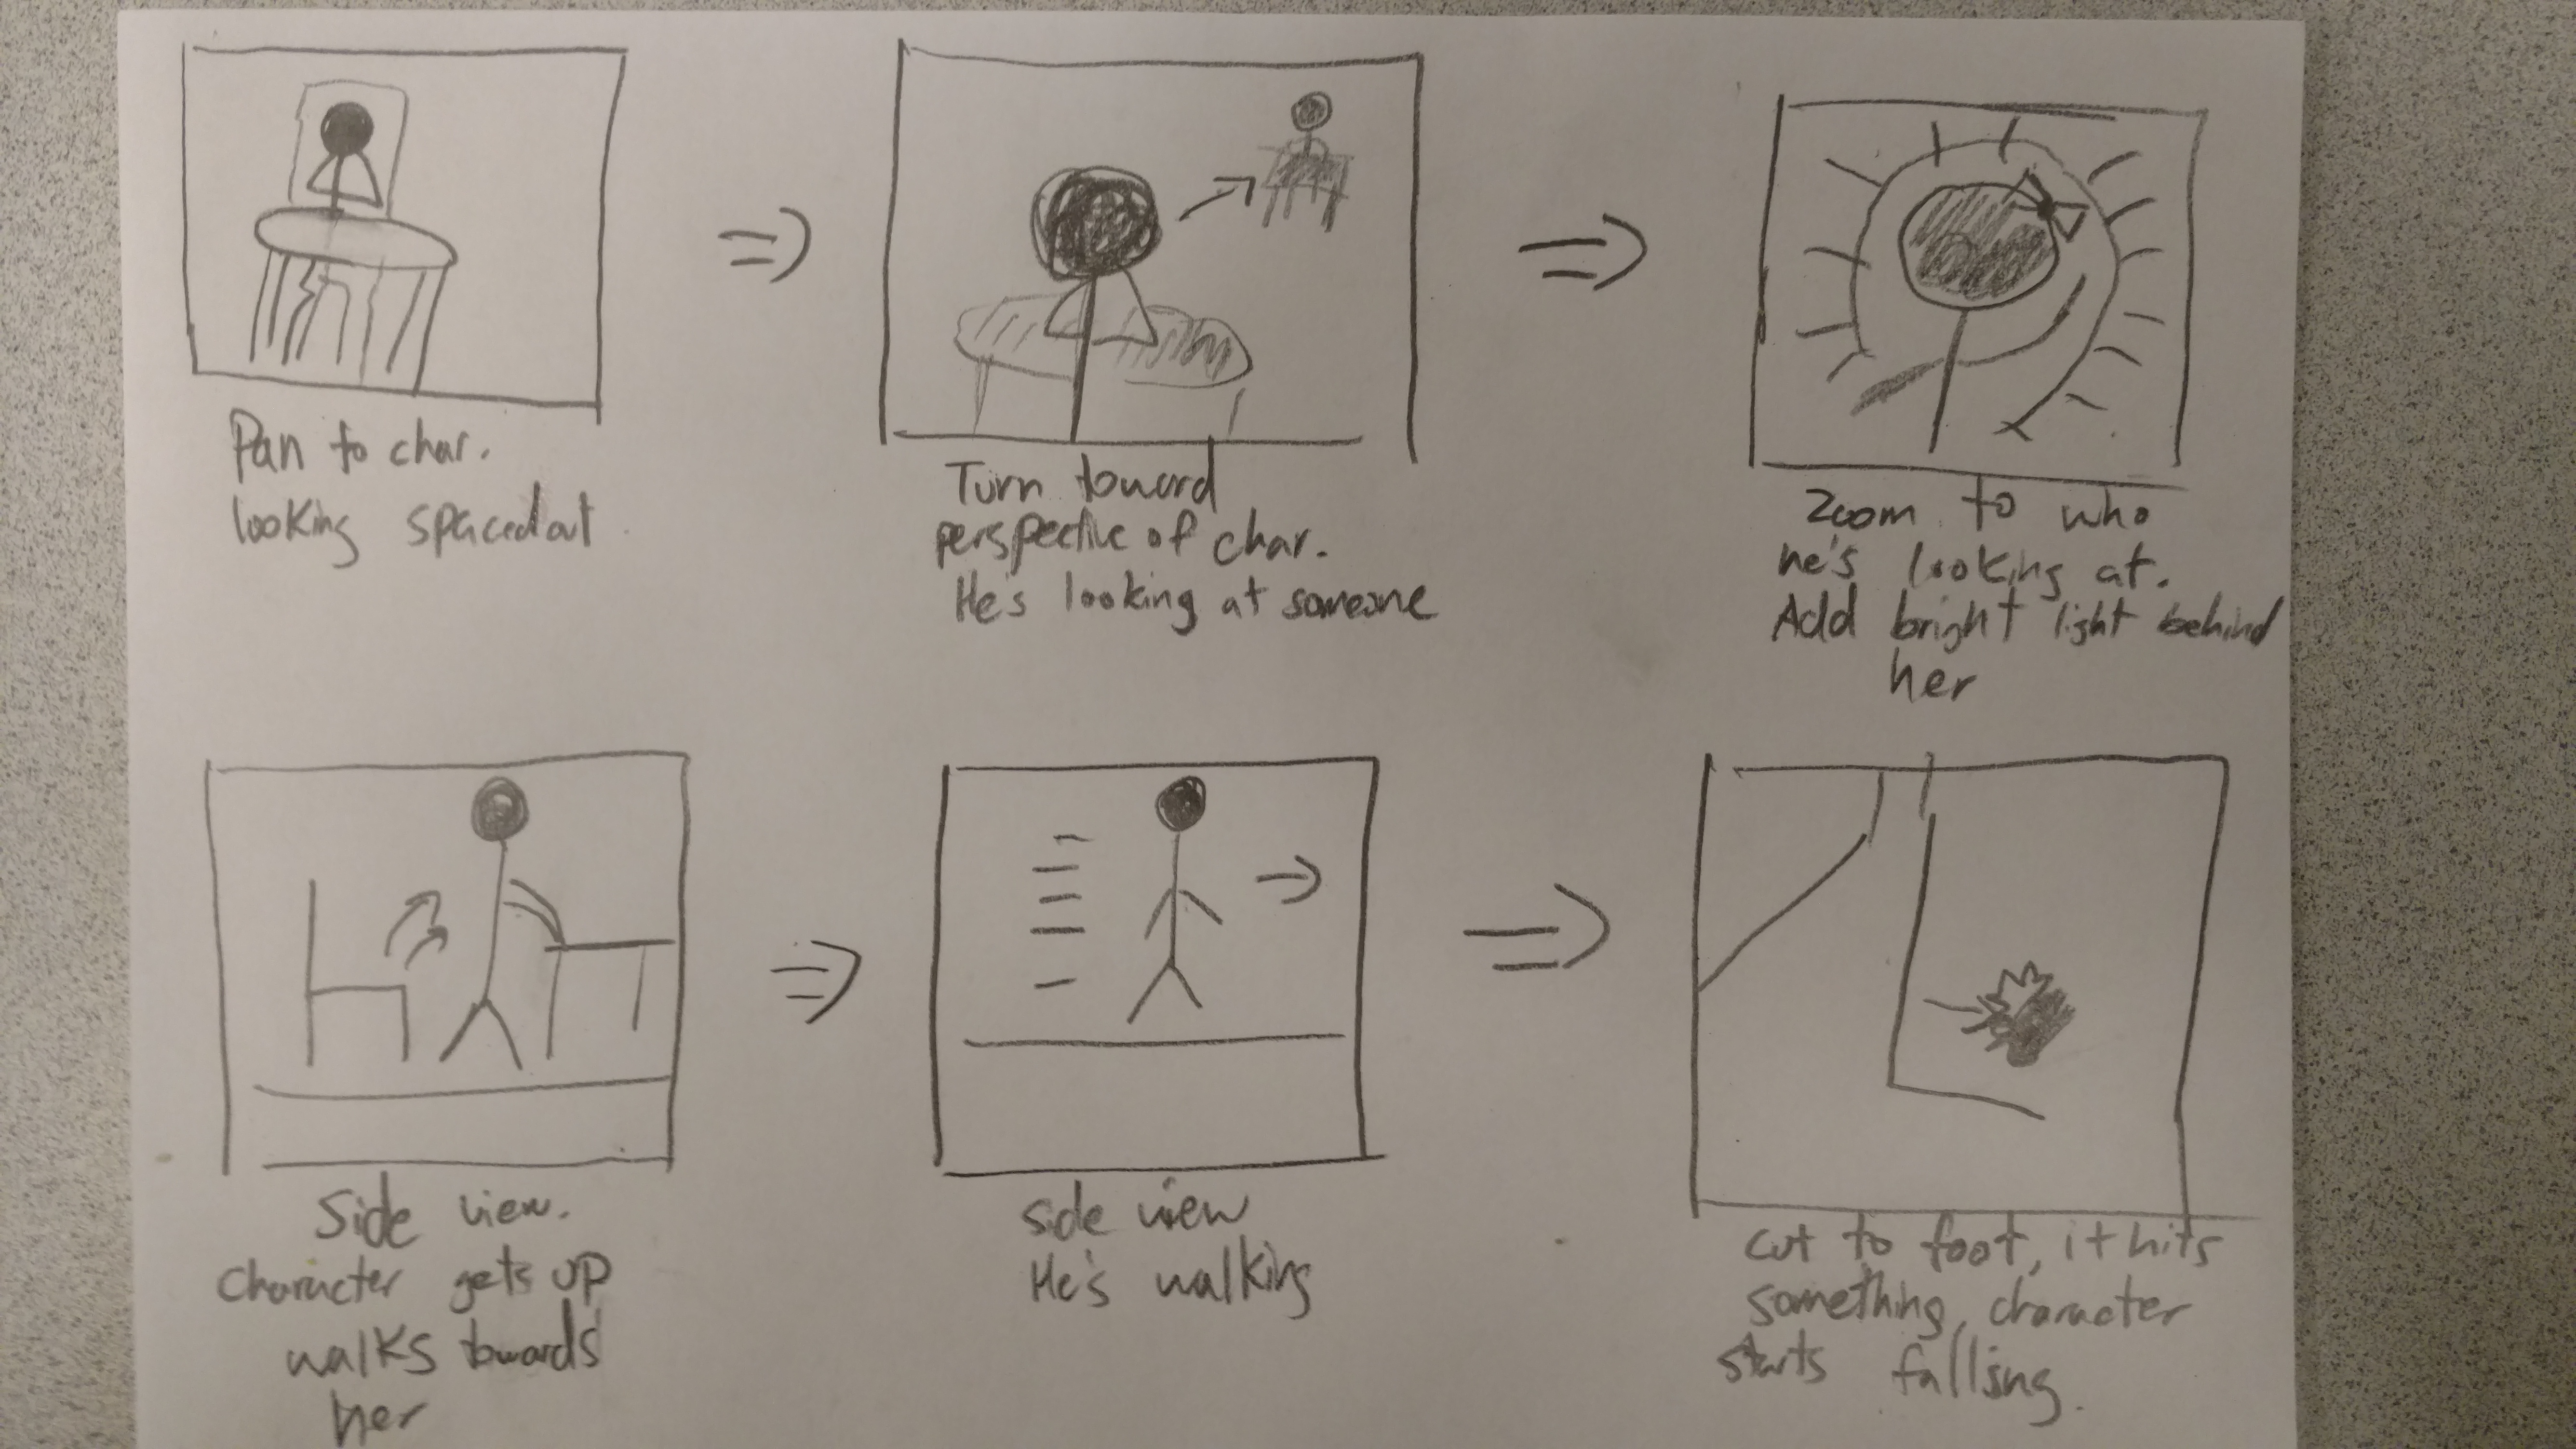 Pan to char.
looking spaced out
Turn toward
perspective of char.
He's looking at someone
Zoom to who
he's looking at.
Add bright light behind
her
Side view.
Character gets up
walks towards
her
side view
He's walking
cut to foot, it hits
something, character
starts falling.